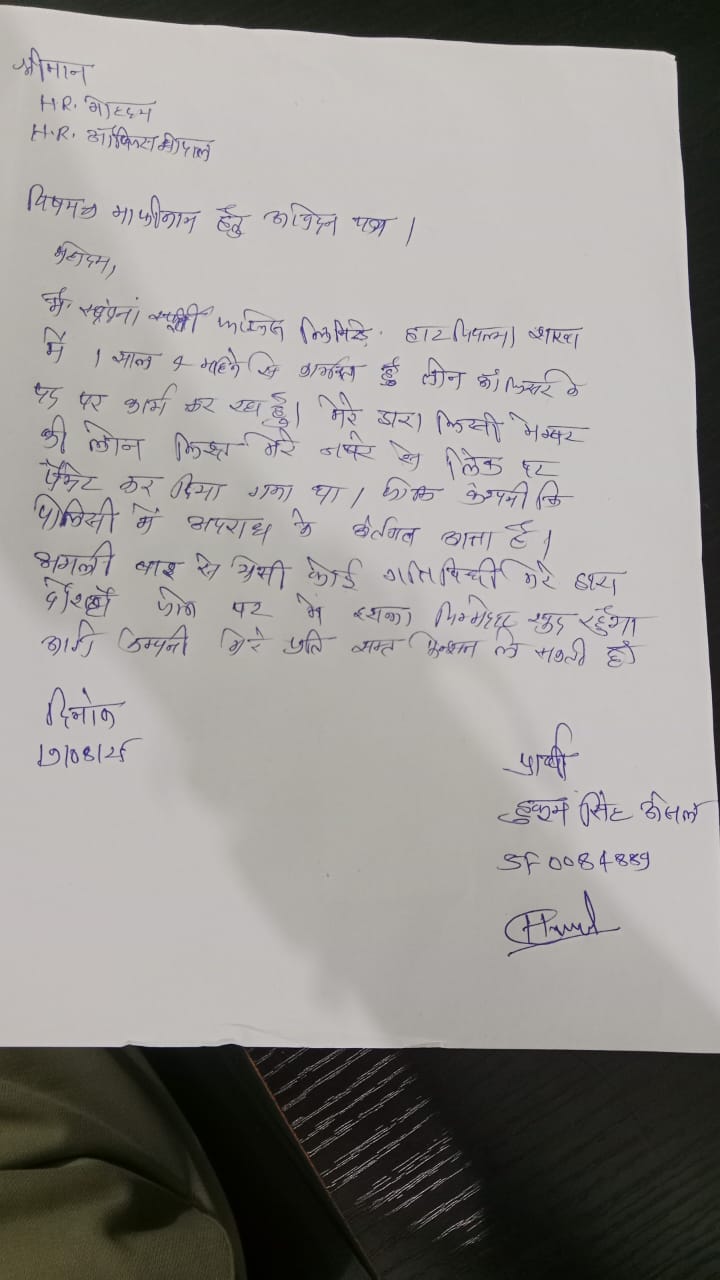 श्रीमान
H.R. महोदय
H.R. ऑफिस भोपाल
विषयः माफीनामा हेतु आवेदन पत्र ।
महोदय,
मैं स्पंदना स्फूर्ती लिमिटेड हाटपिपल्या शाखा
में 1 साल 4 महिने से कार्यरत हुँ लोन के
पद पर कार्य कर रहा हुँ। मेरे द्वारा किसी मेम्बर
की लोन किस्त मेरे नंबर से लिंक पर
पेमेंट कर दिया गया था । कम्पनी कि
पोलिसी में अपराध के अंर्तगत आता है ।
अगली बार से ऐसी कोई गतिविधी मेरे द्वारा
होने पर में इसका जिम्मेदार खुद रहुँगा
कम्पनी मेरे प्रति सख्त एक्शन ले सकती है।
दिनांक
17/08/25
प्रार्थी
हुकुम सिंह
SF0084889